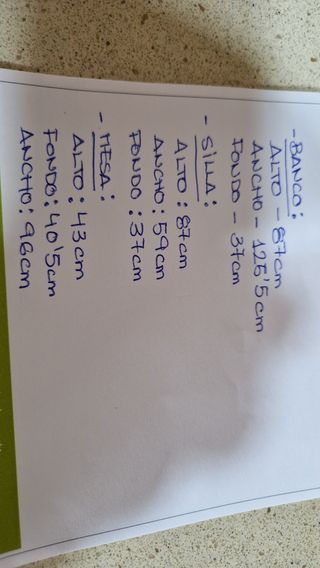 - BANCO:
ALTO - 87cm
ANCHO - 125'5cm
FONDO - 37cm
- SILLA:
ALTO: 87cm
ANCHO: 59cm
FONDO: 37cm
- MESA:
ALTO: 43cm
FONDO: 40'5cm
ANCHO: 96cm